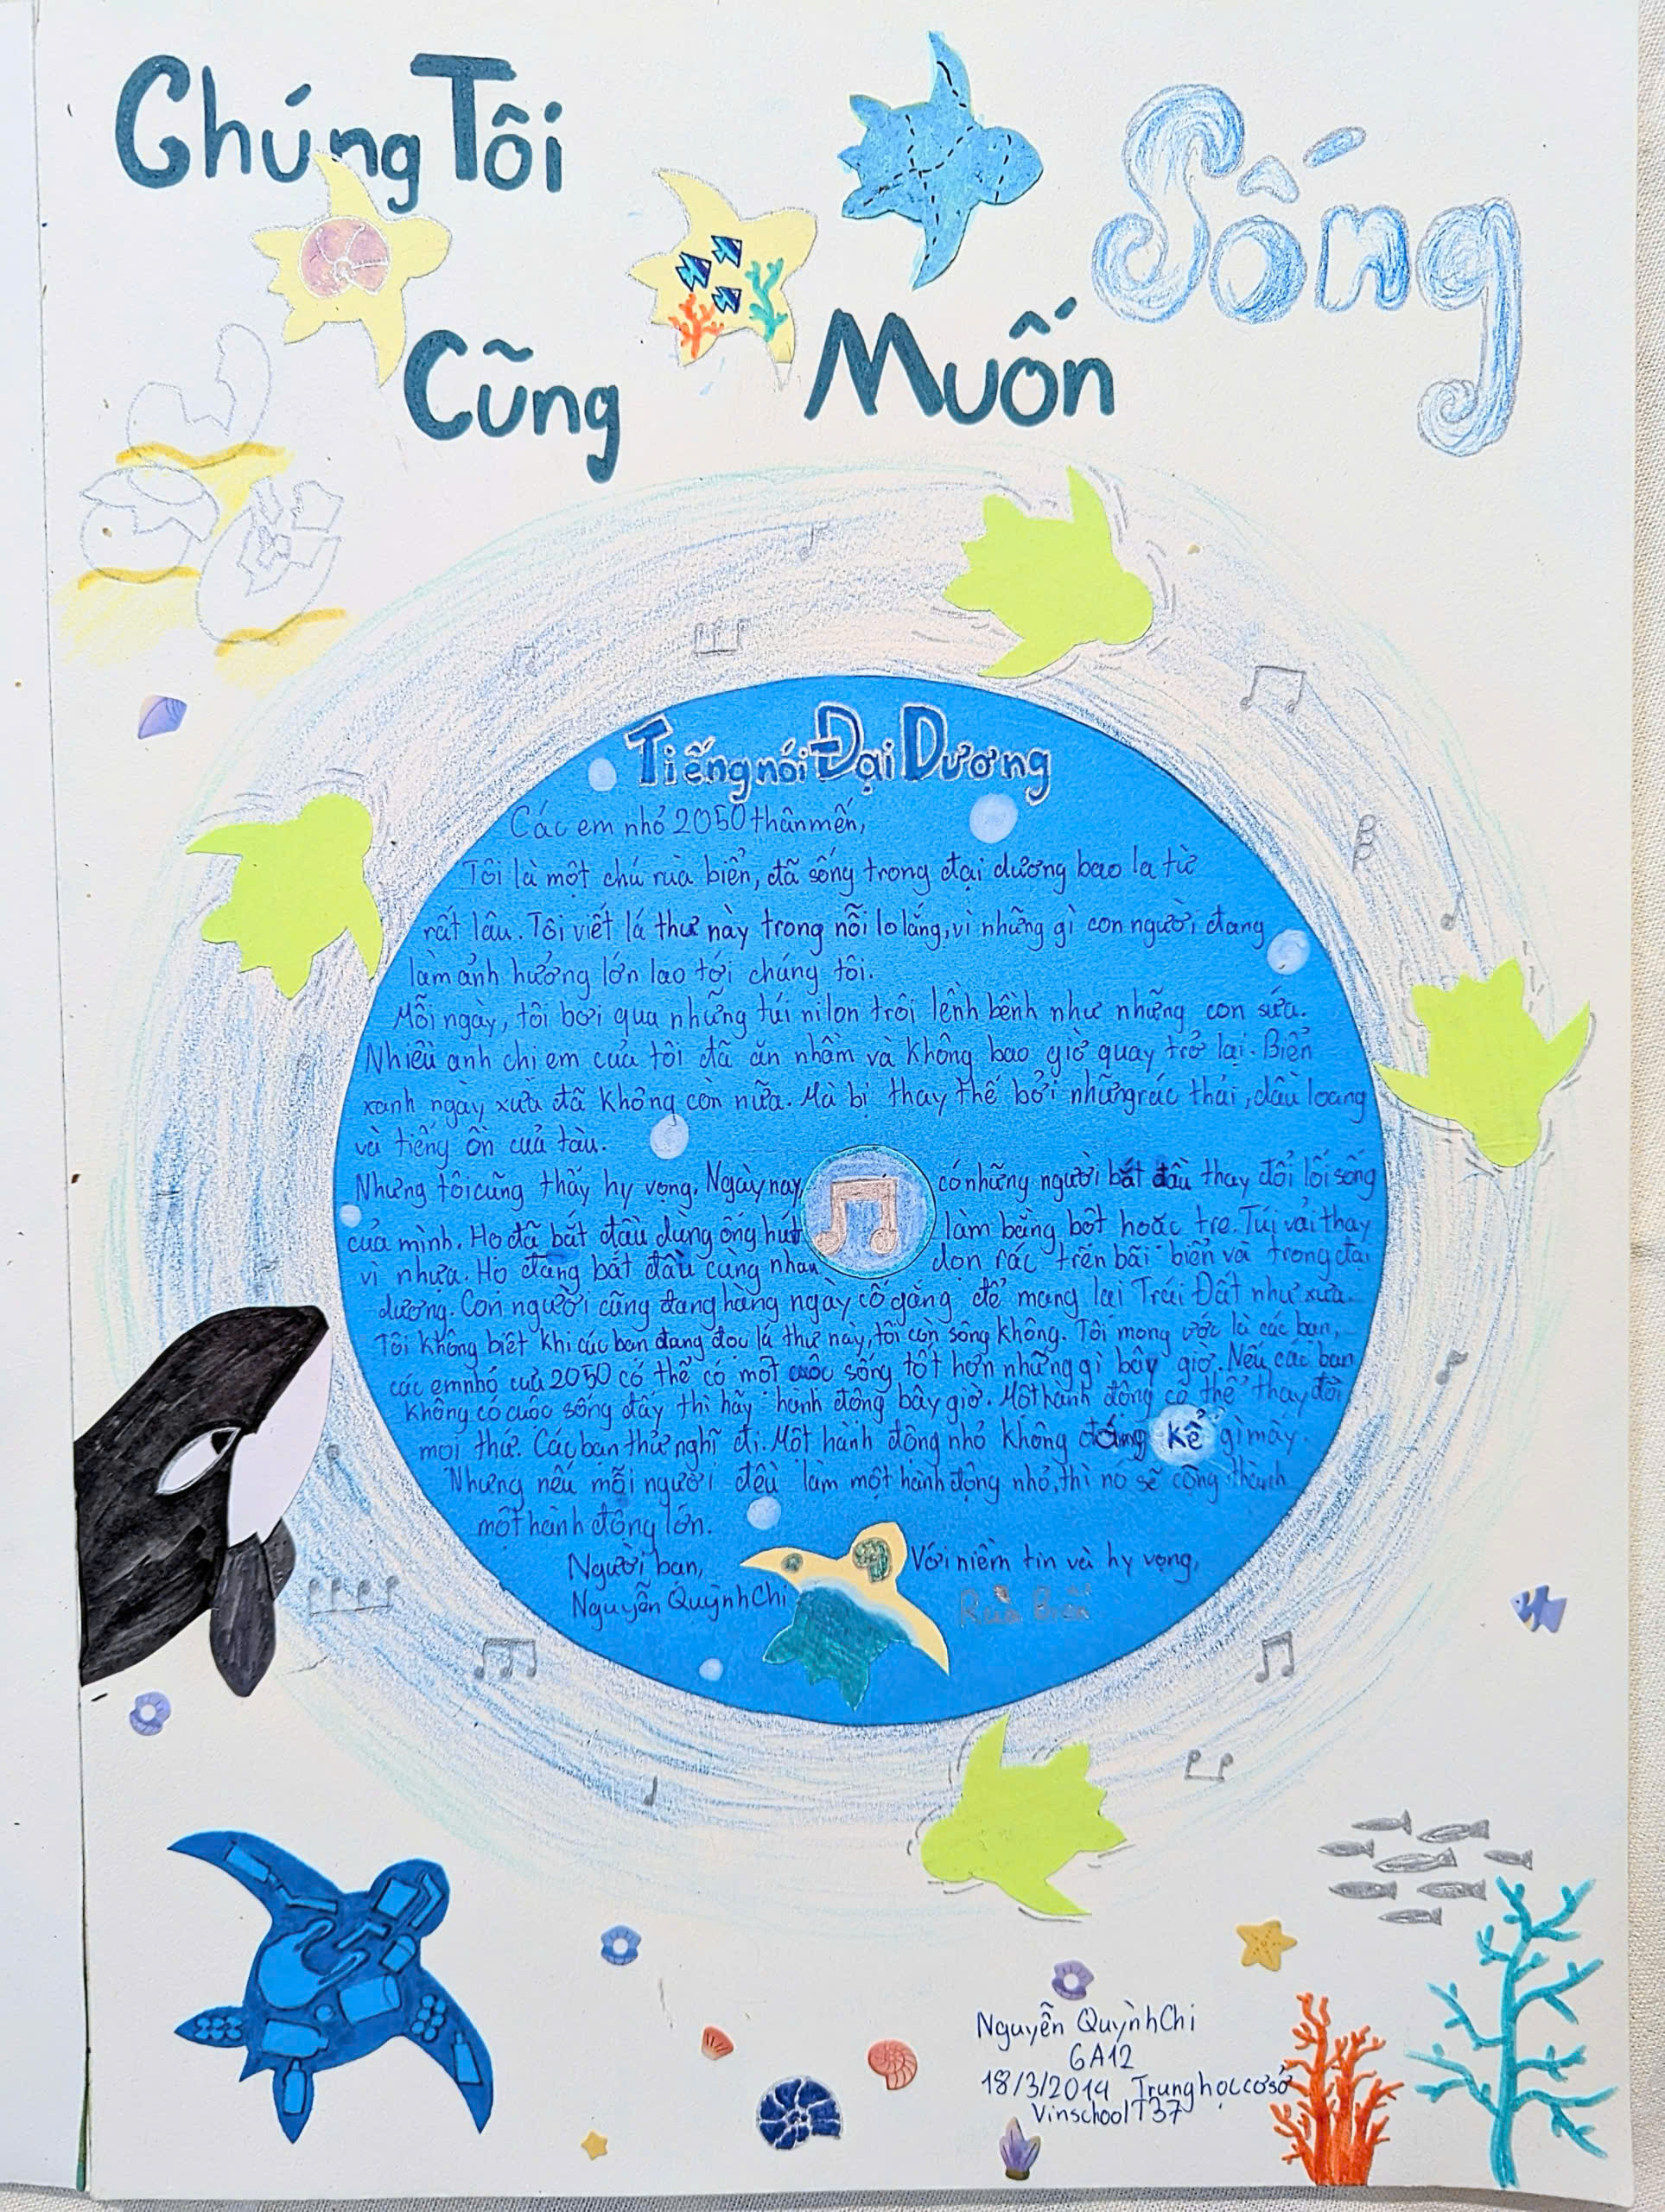 Chúng Tôi
Sống
Cũng Muốn
Tiếng nói Đại Dương
Các em nhỏ 2050 thân mến,
Tôi là một chú rùa biển, đã sống trong đại dương bao la từ
rất lâu. Tôi viết lá thư này trong nỗi lo lắng, vì những gì con người đang
làm ảnh hưởng lớn lao tới chúng tôi.
Mỗi ngày, tôi bơi qua những túi nilon trôi lềnh bềnh như những con sứa.
Nhiều anh chị em của tôi đã ăn nhầm và không bao giờ quay trở lại. Biển
xanh ngày xưa đã không còn nữa. Mà bị thay thế bởi những rác thải, dầu loang
và tiếng ồn của tàu.
Nhưng tôi cũng thấy hy vọng. Ngày nay có những người bắt đầu thay đổi lối sống
của mình. Họ đã bắt đầu dùng ống hút làm bằng bột hoặc tre. Túi vải thay
vì nhựa. Họ đang bắt đầu cùng nhau dọn rác trên bãi biển và trong đại
dương. Con người cũng đang hàng ngày cố gắng để mang lại Trái Đất như xưa.
Tôi không biết khi các bạn đang đọc lá thư này, tôi còn sống không. Tôi mong ước là các bạn,
các em nhỏ của 2050 có thể có một cuộc sống tốt hơn những gì bây giờ. Nếu các bạn
không có cuộc sống đấy thì hãy hành động bây giờ. Một hành động có thể thay đổi
mọi thứ. Các bạn thử nghĩ đi. Một hành động nhỏ không đáng kể gì mấy.
Nhưng nếu mỗi người đều làm một hành động nhỏ, thì nó sẽ cộng thành
một hành động lớn.
Người bạn,
Nguyễn Quỳnh Chi
Với niềm tin và hy vọng,
Rùa Biển
Nguyễn Quỳnh Chi
6A12
18/3/2014 Trung học cơ sở
Vinschool T37